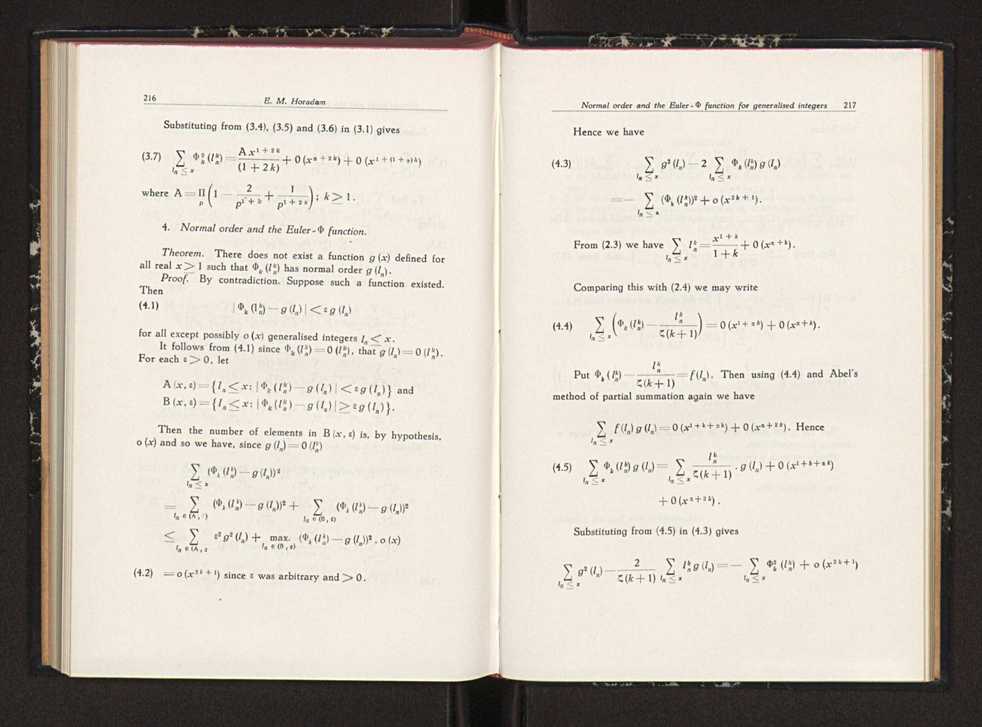 216
E. M. Horadam
Substituting from (3.4), (3.5) and (3.6) in (3.1) gives
(3.7) ∑_{l_n ≤ x} Φ_k^2 (l_n^k) = A x^{1 + 2k} / (1 + 2k) + 0 (x^{α + 2k}) + 0 (x^{1 + (1 + α)k})
where A = Π_p (1 − 2 / p^{1 + k} + 1 / p^{1 + 2k}); k ≥ 1.
4. Normal order and the Euler-Φ function.
Theorem. There does not exist a function g (x) defined for
all real x ≥ 1 such that Φ_k (l_n^k) has normal order g (l_n).
Proof. By contradiction. Suppose such a function existed.
Then
(4.1) | Φ_k (l_n^k) − g (l_n) | < ε g (l_n)
for all except possibly o (x) generalised integers l_n ≤ x.
It follows from (4.1) since Φ_k (l_n^k) = 0 (l_n^k), that g (l_n) = 0 (l_n^k).
For each ε > 0, let
A (x, ε) = {l_n ≤ x: | Φ_k (l_n^k) − g (l_n) | < ε g (l_n)} and
B (x, ε) = {l_n ≤ x: | Φ_k (l_n^k) − g (l_n) | ≥ ε g (l_n)}.
Then the number of elements in B (x, ε) is, by hypothesis,
o (x) and so we have, since g (l_n) = 0 (l_n^k)
∑_{l_n ≤ x} (Φ_k (l_n^k) − g (l_n))²
= ∑_{l_n ∈ (A, ε)} (Φ_k (l_n^k) − g (l_n))² + ∑_{l_n ∈ (B, ε)} (Φ_k (l_n^k) − g (l_n))²
≤ ∑_{l_n ∈ (A, ε} ε² g² (l_n) + max._{l_n ∈ (B, ε)} (Φ_k (l_n^k) − g (l_n))² . o (x)
(4.2) = o (x^{2k + 1}) since ε was arbitrary and > 0.
Normal order and the Euler-Φ function for generalised integers 217
Hence we have
(4.3) ∑_{l_n ≤ x} g² (l_n) − 2 ∑_{l_n ≤ x} Φ_k (l_n^k) g (l_n)
= − ∑_{l_n ≤ x} (Φ_k (l_n^k))² + o (x^{2k + 1}).
From (2.3) we have ∑_{l_n ≤ x} l_n^k = x^{1 + k} / (1 + k) + 0 (x^{α + k}).
Comparing this with (2.4) we may write
(4.4) ∑_{l_n ≤ x} (Φ_k (l_n^k) − l_n^k / ζ(k + 1)) = 0 (x^{1 + αk}) + 0 (x^{α + k}).
Put Φ_k (l_n^k) − l_n^k / ζ(k + 1) = f (l_n). Then using (4.4) and Abel's
method of partial summation again we have
∑_{l_n ≤ x} f (l_n) g (l_n) = 0 (x^{1 + k + αk}) + 0 (x^{α + 2k}). Hence
(4.5) ∑_{l_n ≤ x} Φ_k (l_n^k) g (l_n) = ∑_{l_n ≤ x} l_n^k / ζ(k + 1) . g (l_n) + 0 (x^{1 + k + αk})
+ 0 (x^{α + 2k}).
Substituting from (4.5) in (4.3) gives
∑_{l_n ≤ x} g² (l_n) − 2 / ζ(k + 1) ∑_{l_n ≤ x} l_n^k g (l_n) = − ∑_{l_n ≤ x} Φ_k^2 (l_n^k) + o (x^{2k + 1})